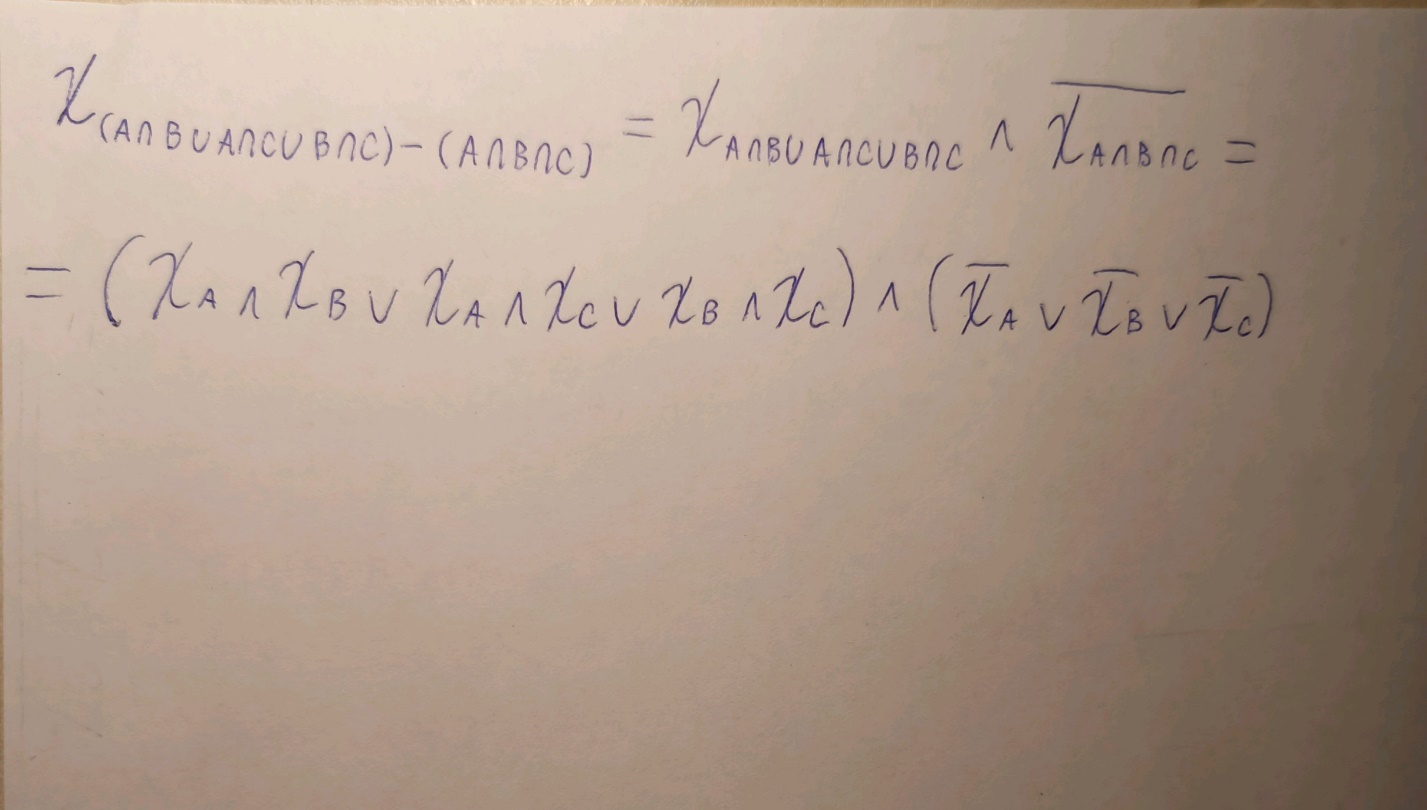 χ_(A∩B∪A∩C∪B∩C)−(A∩B∩C) = χ_A∩B∪A∩C∪B∩C ∧ \overline{χ_A∩B∩C} =
= (χ_A ∧ χ_B ∨ χ_A ∧ χ_C ∨ χ_B ∧ χ_C) ∧ (\overline{χ}_A ∨ \overline{χ}_B ∨ \overline{χ}_C)